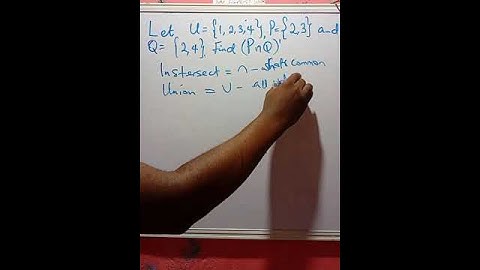 Let U = {1, 2, 3, 4}, P = {2,3} and
Q = {2,4}, Find (P∩Q)'
Instersect = ∩ - common
Union = ∪ - all